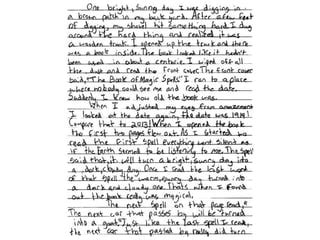 One bright, sunny day I was digging in
a brown patch in my back yard. After a few feet
of digging, my shovel hit something hard. I dug
around the hard thing and realized it was
a wooden trunk. I opened up the trunk and there
was a book inside. The book looked like it hadn't
been used in about a centurie. I wiped off all
the dust and read the front cover. The front cover
said, "The Book of Magic Spells" I ran to a place
where nobody could see me and read the date.
Suddenly I knew how old the book was.
When I adjusted my eyes from amazement
I looked at the date again, the date was 1919!
Compare that to 2013! When I opened the book
the first two pages flew out. As I started to
read the first spell everything went silent as
if the Earth stomed to be listening to me. The spell
said that, it will turn a bright, sunny day into
a dark, cloudy day. Once I said the last word
of that spell the warm, sunny day turned into
a dark and cloudy one. That's when I found
out the book really was magical.
The next spell on that page read,"
The next car that passes by will be turned
into a goat." Just like the last spell I read,
the next car that passed by really did turn